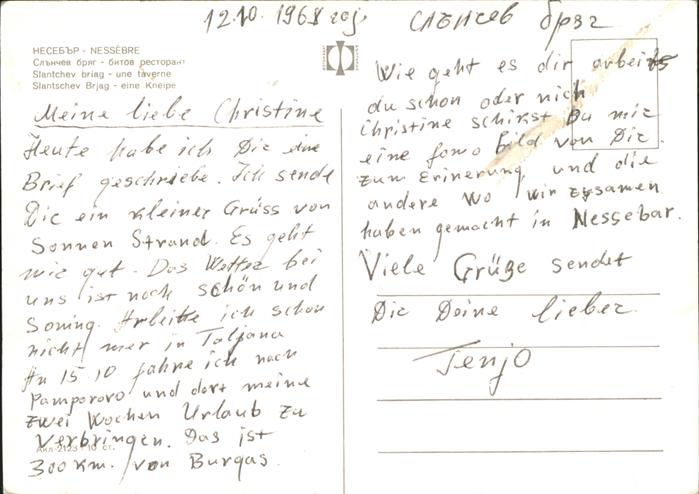 12.10. 1968 год. Слънчев бряг
НЕСЕБЪР - NESSÈBRE
Слънчев бряг - битов ресторант
Slantchev briag - une taverne
Slantschev Brjag - eine Kneipe
Meine liebe Christine
Heute habe ich Dir eine
Brief geschriebe. Ich sende
Dir ein kleiner Grüss von
Sonnen Strand. Es geht
mir gut. Das Wetter bei
uns ist noch schön und
Soning. Arbeite ich schon
nicht mer in Taljana
An 15 10 fahre ich nach
Pamporovo und dort meine
zwei Wochen Urlaub zu
verbringen. Das ist
300 km. von Burgas.
Акл-2123 10 ст.
Wie geht es dir arbeits
du schon oder nich
Christine schikst Du mir
eine fomo bild von Dir.
zum Erinerung und die
andere wo wir zusamen
haben gemacht in Nessebar.
Viele Grüße sendet
Dir Deine lieber
Tenjo